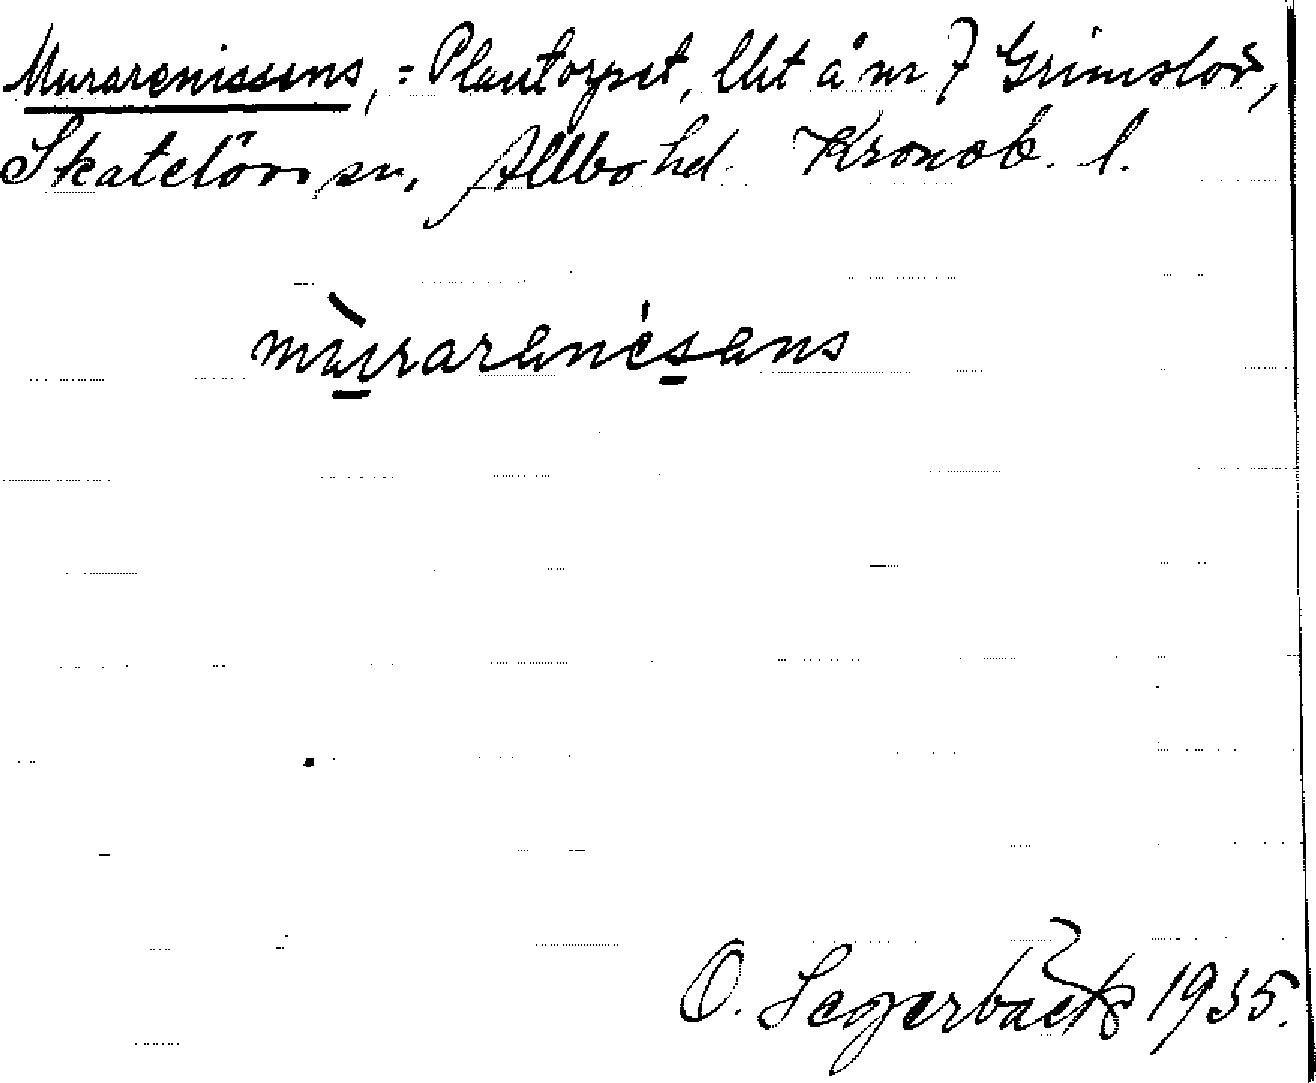 Murarenissens, = Plantorpet, lht å nr 7 Grimslöv,
Skatelövs sn, Allbo hd. Kronob. l.
mùraranísans
O. Segerbäck 1935.